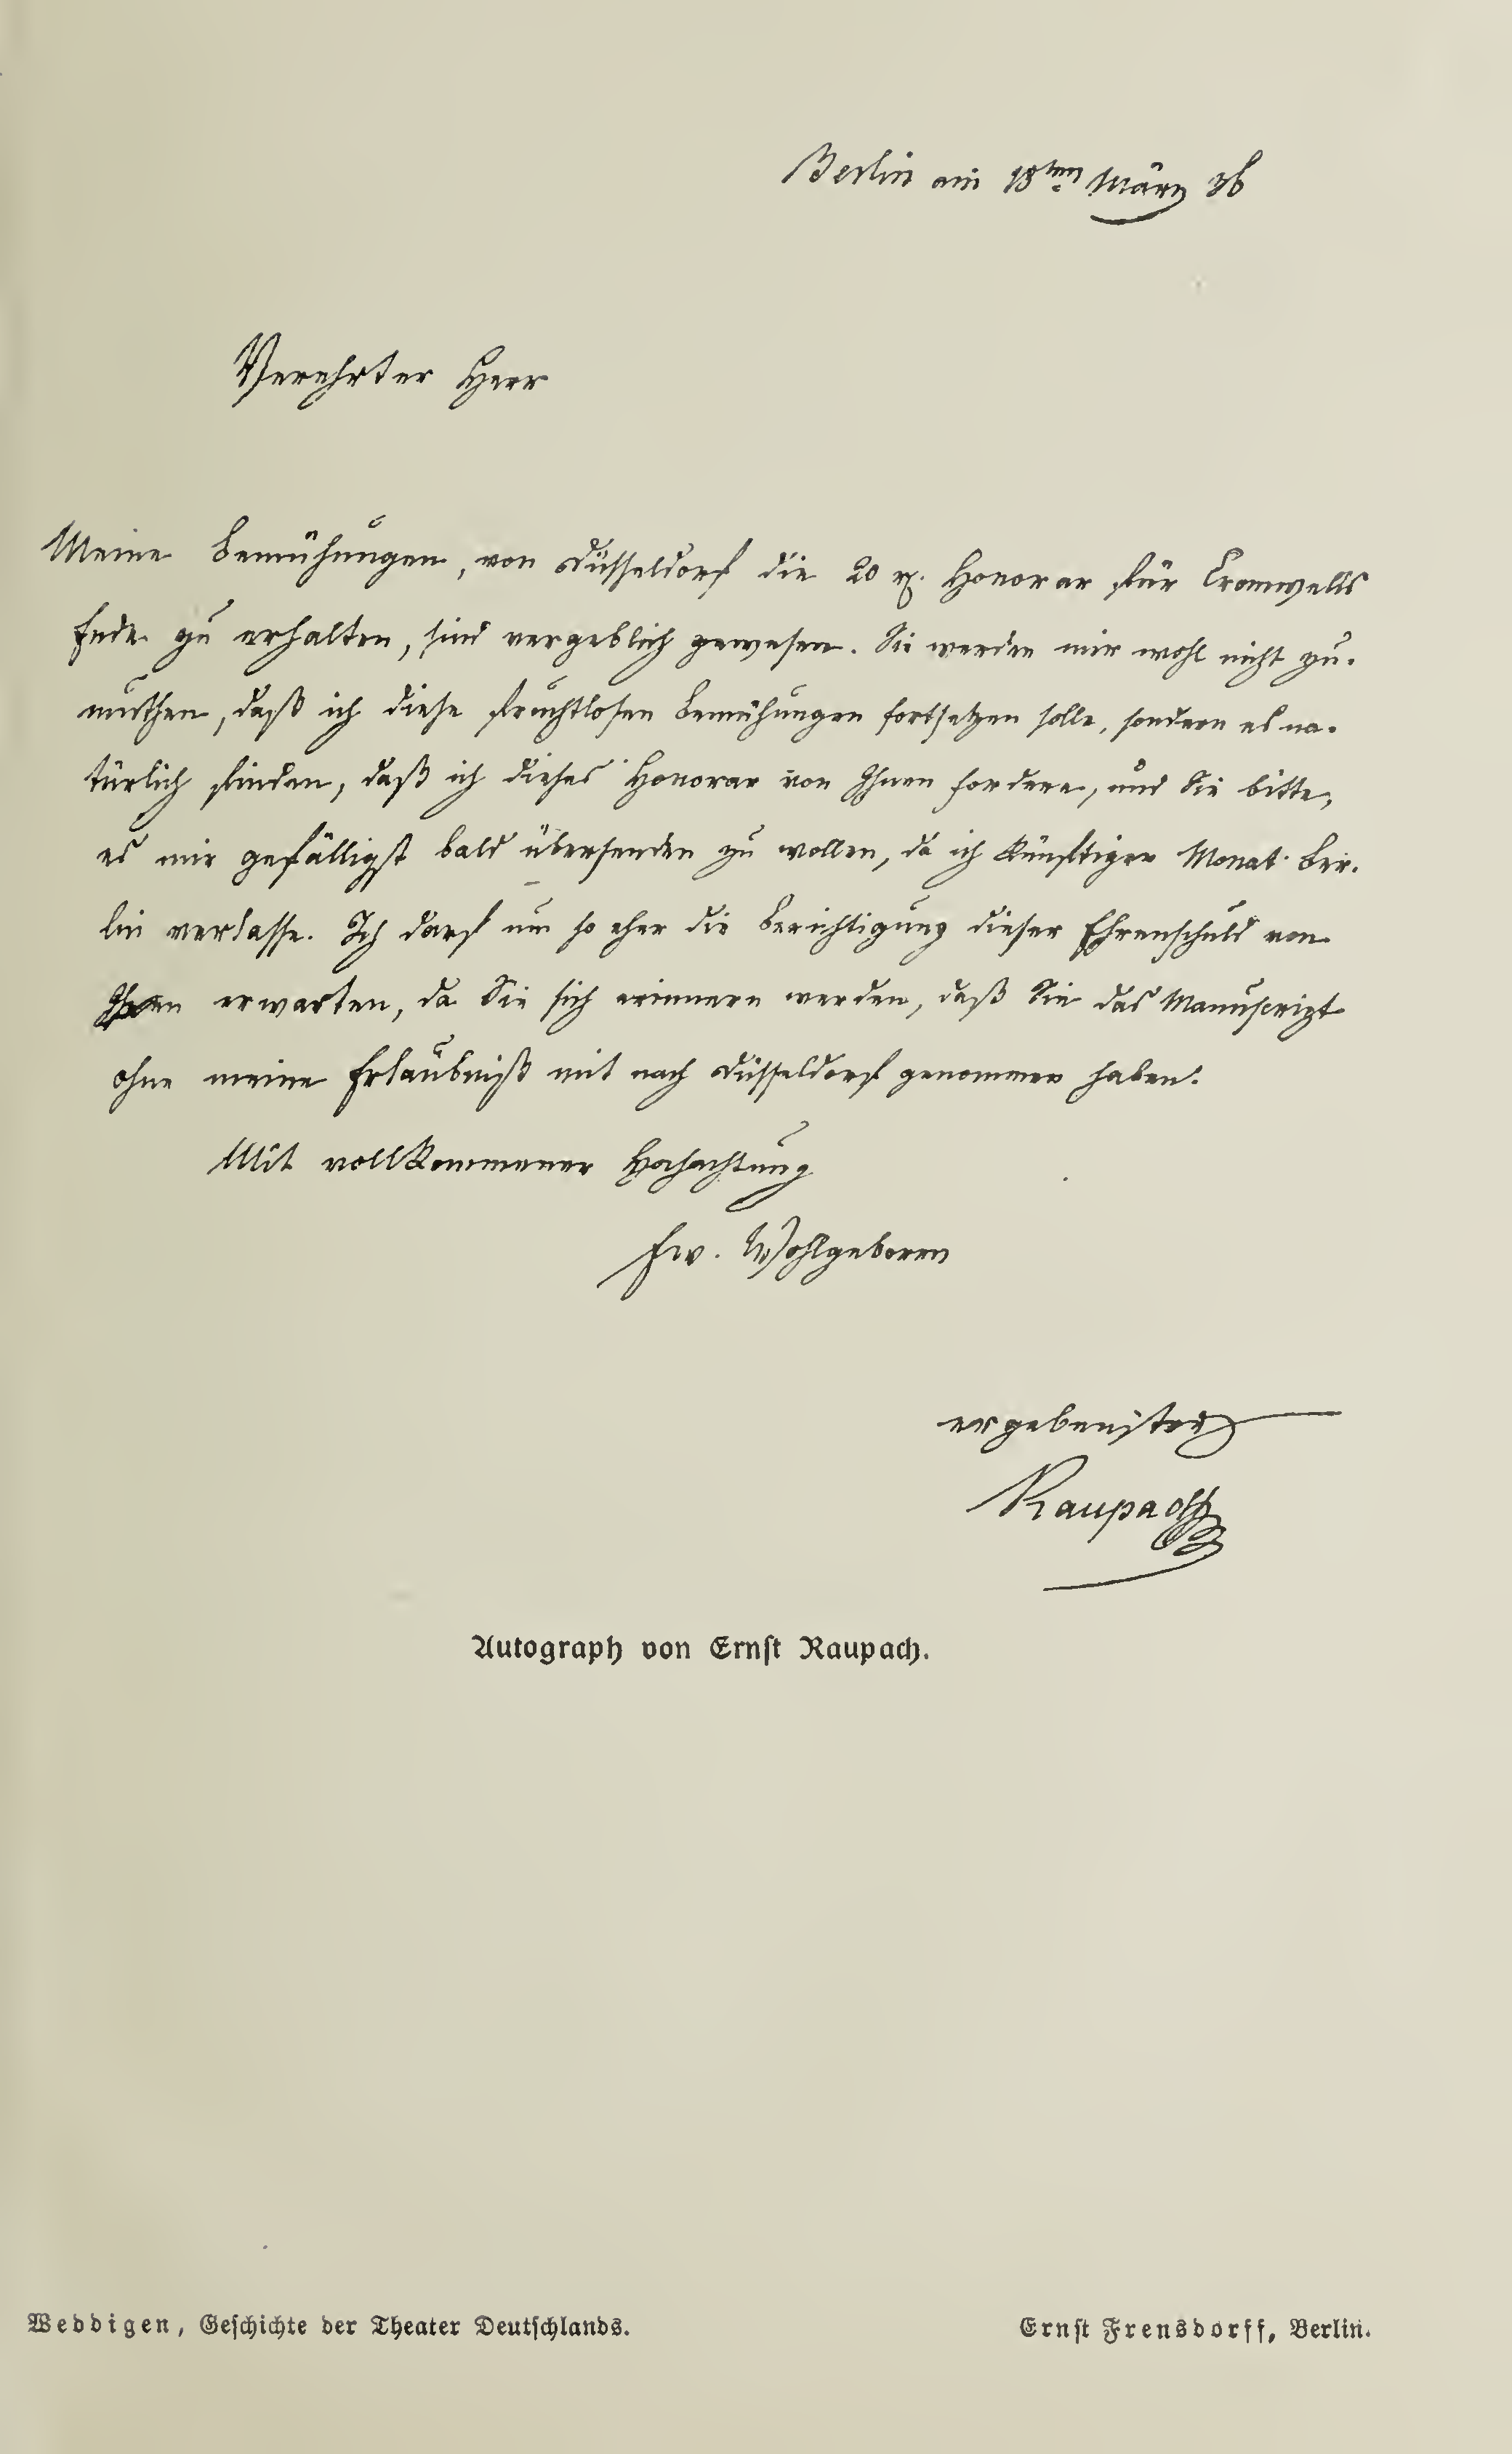 Berlin am 18ten März 36
Verehrter Herr
Meine Bemühungen, von Düsseldorf die 20 rℓ. Honorar für Cromwells
Ende zu erhalten, sind vergeblich gewesen. Sie werden mir wohl nicht zu-
muthen, daß ich diese fruchtlosen Bemühungen fortsetzen solle, sondern es na-
türlich finden, daß ich dieses Honorar von Ihnen fordere, und Sie bitte,
es mir gefälligst bald übersenden zu wollen, da ich künftigen Monat Ber-
lin verlasse. Ich darf um so eher die Berichtigung dieser Ehrenschuld von
Ihnen erwarten, da Sie sich erinnern werden, daß Sie das Manuscript
ohne meine Erlaubniß mit nach Düsseldorf genommen haben.
Mit vollkommener Hochachtung
Ew. Wohlgeboren
ergebenster
Raupach
Autograph von Ernſt Raupach.
Weddigen, Geſchichte der Theater Deutſchlands.
Ernſt Frensdorff, Berlin.